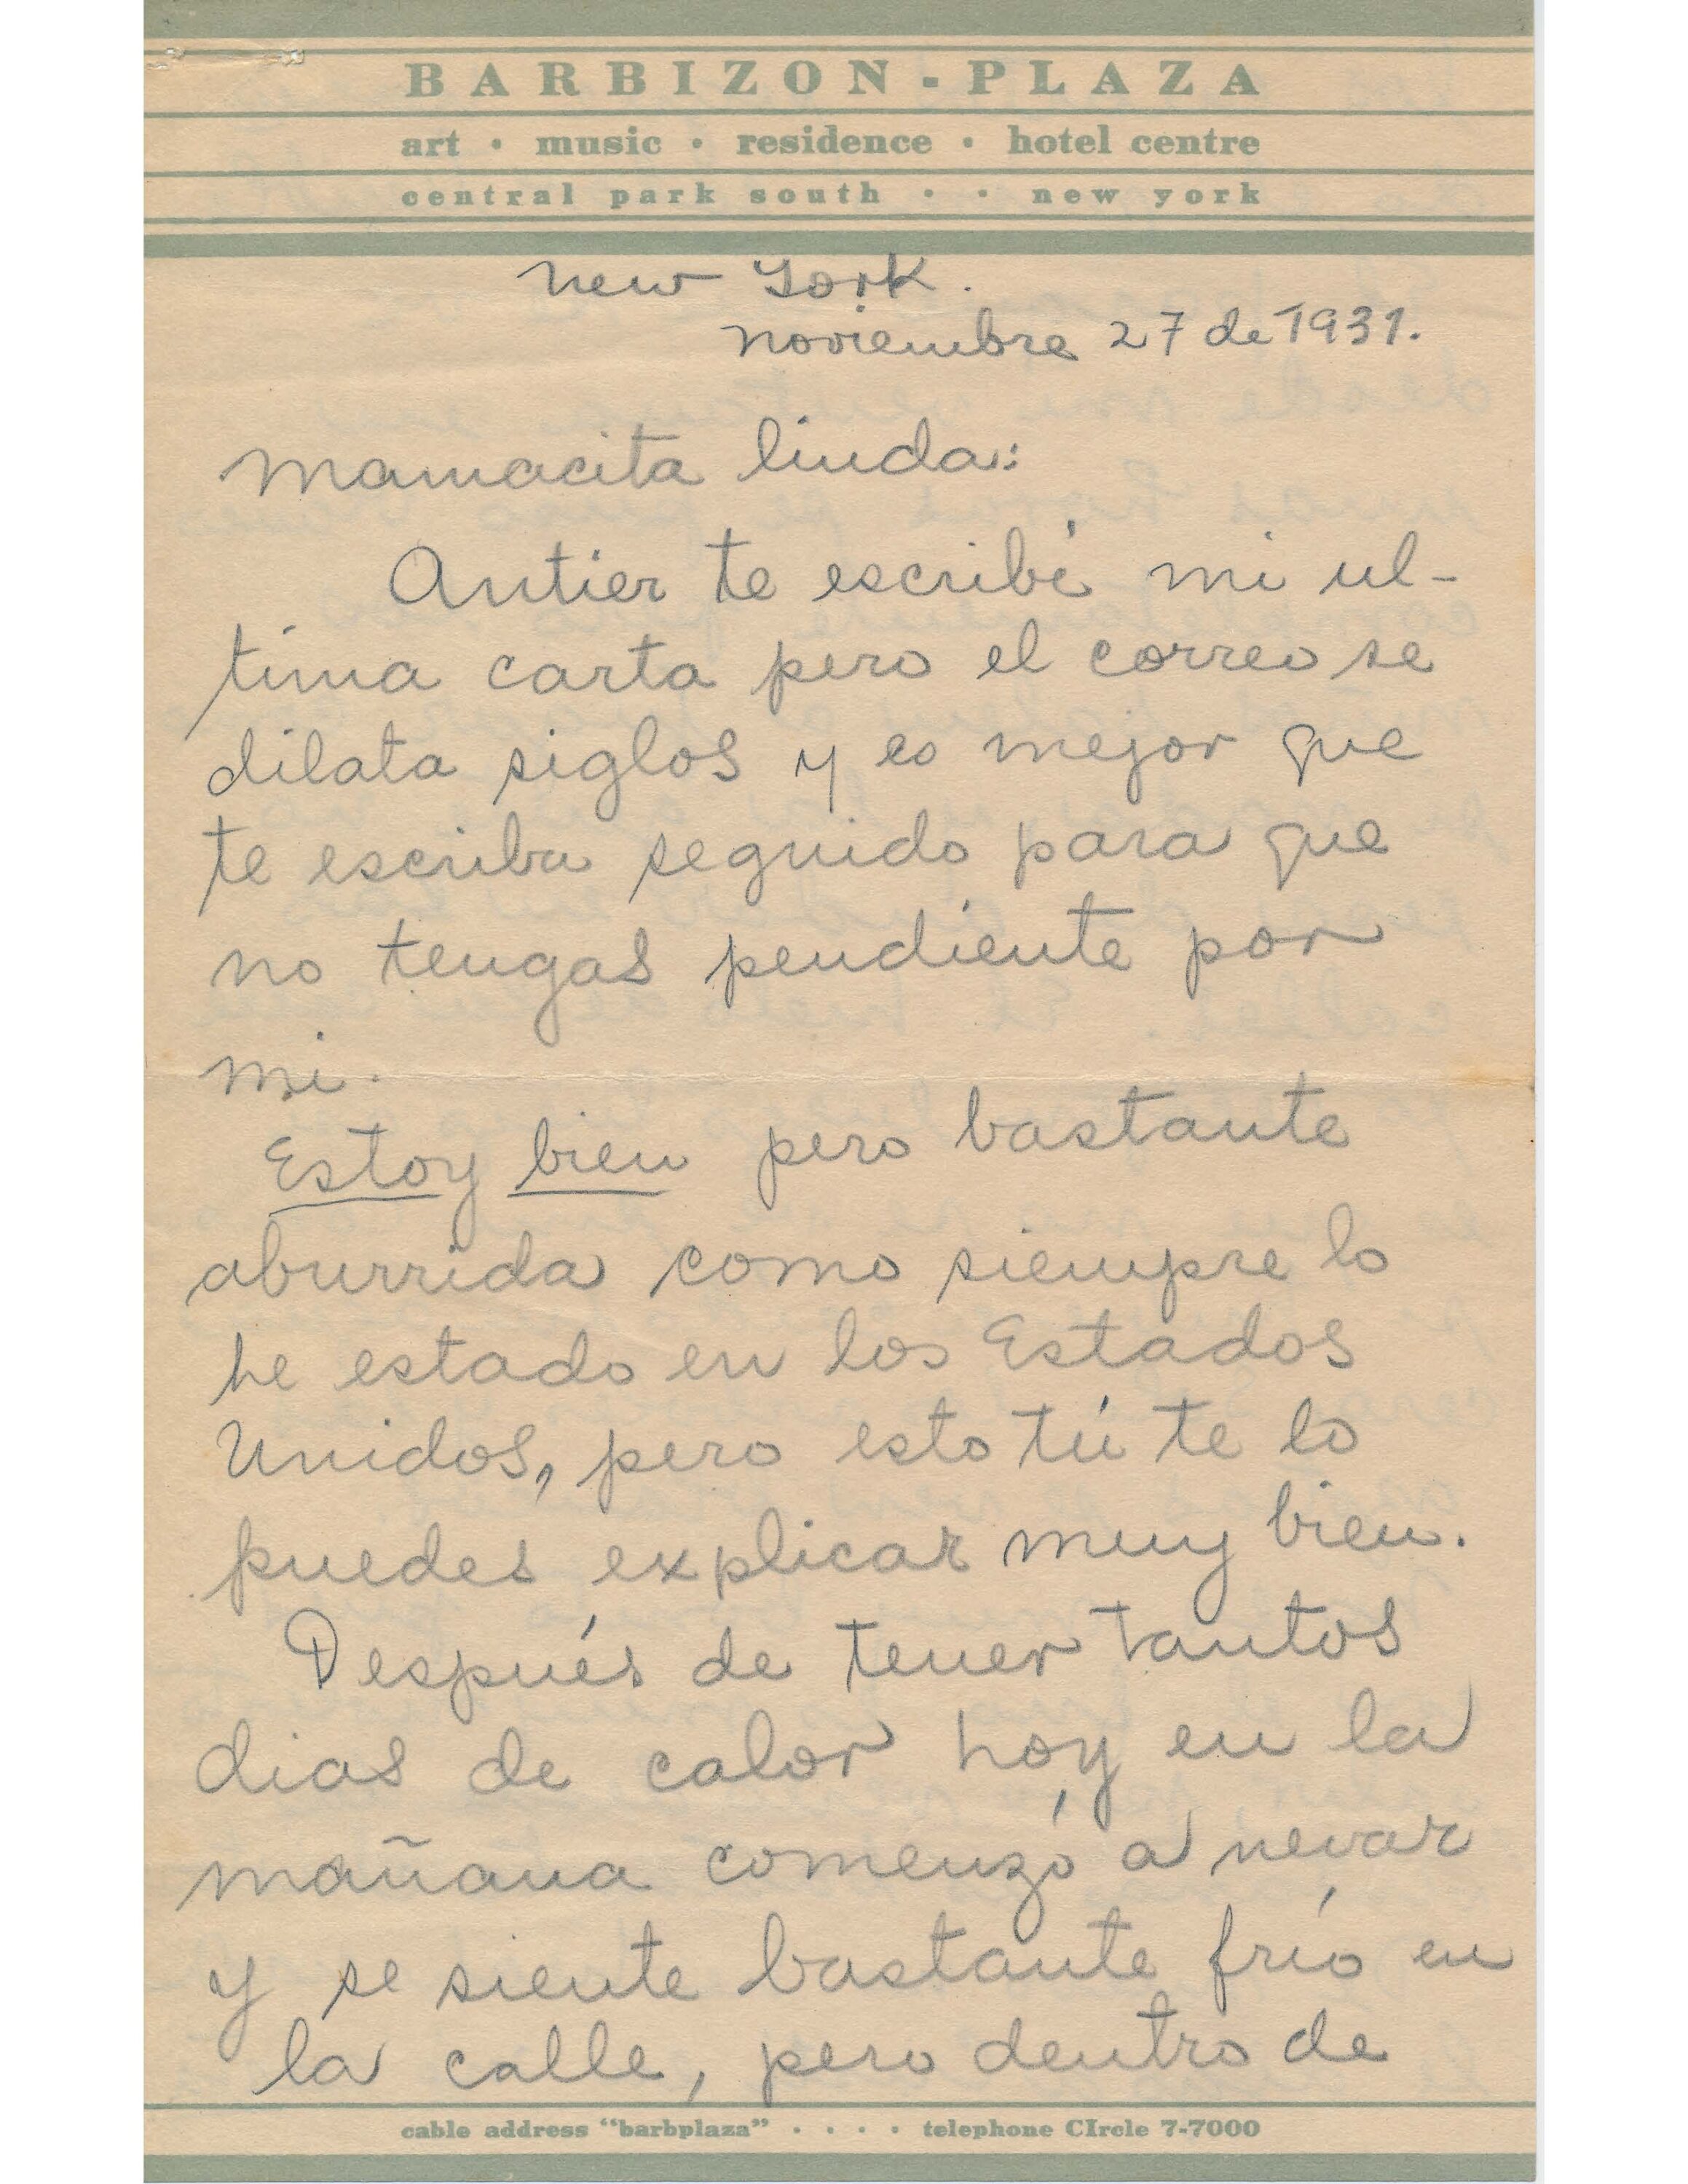 BARBIZON-PLAZA
art · music · residence · hotel centre
central park south · · new york
New York.
Noviembre 27 de 1931.
Mamacita linda:
Antier te escribí mi ul-
tima carta pero el correo se
dilata siglos y es mejor que
te escriba seguido para que
no tengas pendiente por
mi.
Estoy bien pero bastante
aburrida como siempre lo
he estado en los Estados
Unidos, pero esto tú te lo
puedes explicar muy bien.
Después de tener tantos
dias de calor hoy en la
mañana comenzó a nevar
y se siente bastante frío en
la calle, pero dentro de
cable address "barbplaza" · · · · telephone CIrcle 7-7000